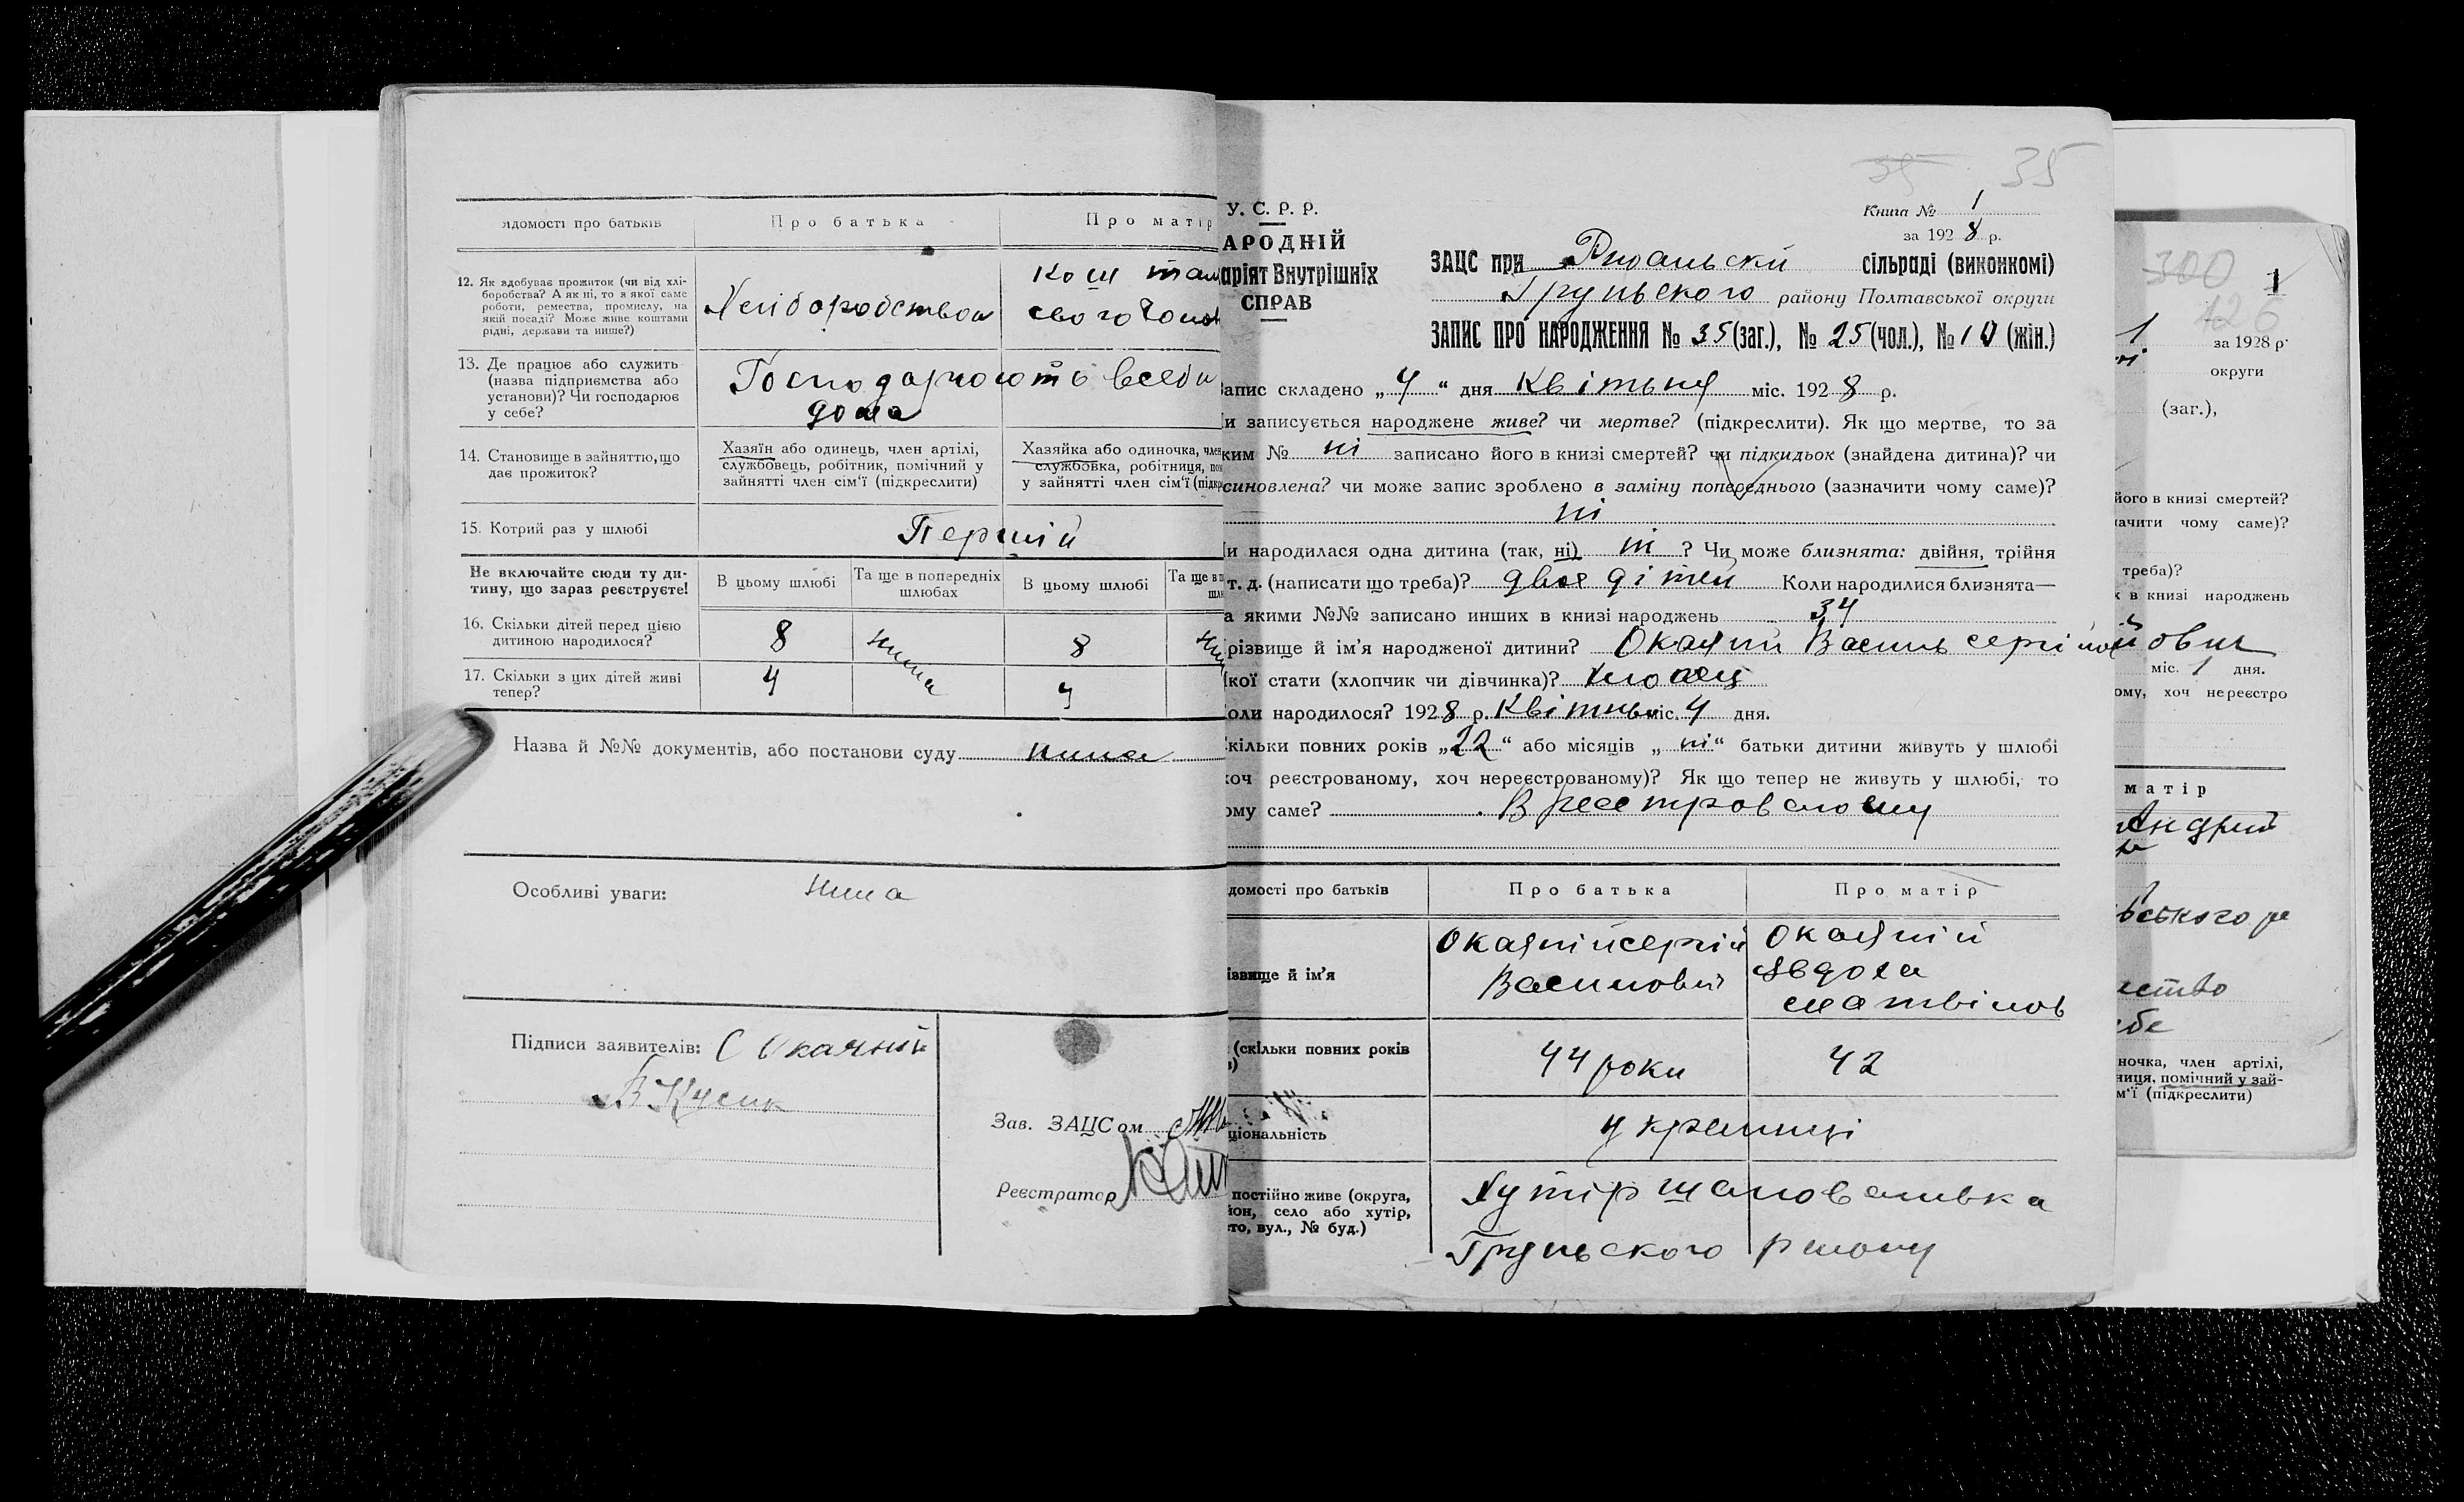 ідомості про батьків
Про батька
Про матір
12. Як здобуває прожиток (чи від хлі-
боробства? А як ні, то з якої саме
роботи, ремества, промислу, на
якій посаді? Може живе коштами
рідні, держави та инше?)
Хліборобством
кош там
свого чолов
13. Де працює або служить
(назва підприємства або
установи)? Чи господарює
у себе?
Господарюють в себи
дома
14. Становище в зайняттю, що
дає прожиток?
Хазяїн або одинець, член артілі,
службовець, робітник, помічний у
зайнятті член сім'ї (підкреслити)
Хазяйка або одиночка, член
службовка, робітниця, пом
у зайнятті член сім'ї (підкр
15. Котрий раз у шлюбі
Перший
Не включайте сюди ту ди-
тину, що зараз реєструєте!
В цьому шлюбі
Та ще в попередніх
шлюбах
В цьому шлюбі
Та ще в п
шл
16. Скільки дітей перед цією
дитиною народилося?
8
нима
8
17. Скільки з цих дітей живі
тепер?
4
4
Назва й №№ документів, або постанови суду нима
Особливі уваги: нима
Підписи заявителів: С Окаяний
В Кусик
Зав. ЗАЦСом
Реєстратор
35 35
У. С. Р. Р.
АРОДНІЙ
аріят Внутрішніх
СПРАВ
Книга № 1
за 1928 р.
ЗАЦС при сільраді (виконкомі)
Груньского району Полтавської округи
ЗАПИС ПРО НАРОДЖЕННЯ № 35 (заг.), № 25 (чол.), № 10 (жін.)
апис складено „4“ дня Квітьня міс. 1928 р.
и записується народжене живе? чи мертве? (підкреслити). Як що мертве, то за
ким № ні записано його в книзі смертей? чи підкидьок (знайдена дитина)? чи
синовлена? чи може запис зроблено в заміну попереднього (зазначити чому саме)?
ні
и народилася одна дитина (так, ні) ні ? Чи може близнята: двійня, трійня
т. д. (написати що треба)? двоє дітей Коли народилися близнята—
а якими №№ записано инших в книзі народжень 34
різвище й ім'я народженої дитини? Окаяний Василь сергійович
кої стати (хлопчик чи дівчинка)? хлопец
оли народилося? 1928 р. Квітньа міс. 4 дня.
кільки повних років „22“ або місяців „ні“ батьки дитини живуть у шлюбі
хоч реєстрованому, хоч нереєстрованому)? Як що тепер не живуть у шлюбі, то
ому саме? В реестрованому
домості про батьків
Про батька
Про матір
ізвище й ім'я
Окаяній сергій
Василовий
Окаяній
Явдоха
матвіиов
(скільки повних років
44 роки
42
ціональність
украинці
постійно живе (округа,
йон, село або хутір,
сто, вул., № буд.)
Хутір шаповаливка
Груньского району
300
126
1
1
за 1928 р.
округи
(заг.),
його в книзі смертей?
начити чому саме)?
треба)?
х в книзі народжень
міс. 1 дня.
ому, хоч нереєстро
матір
ського ра
ество
ебе
ночка, член артілі,
ниця, помічний у зай-
м'ї (підкреслити)